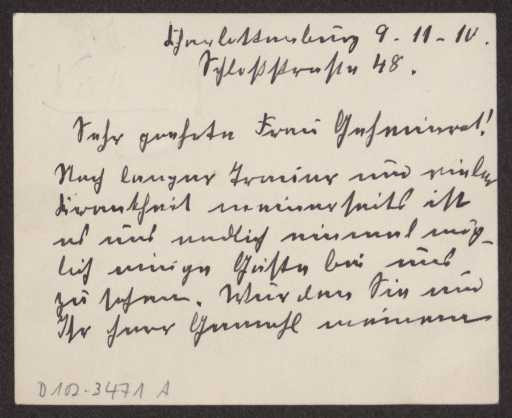 Charlottenburg 9-11-10.
Schloßstraße 48.
Sehr geehrte Frau Geheimrat!
Nach langer Trauer und vieler
Krankheit meinerseits ist
es uns endlich einmal mög-
lich einige Gäste bei uns
zu sehen. Würden Sie und
Ihr Herr Gemahl meinem
D 102-3471 A